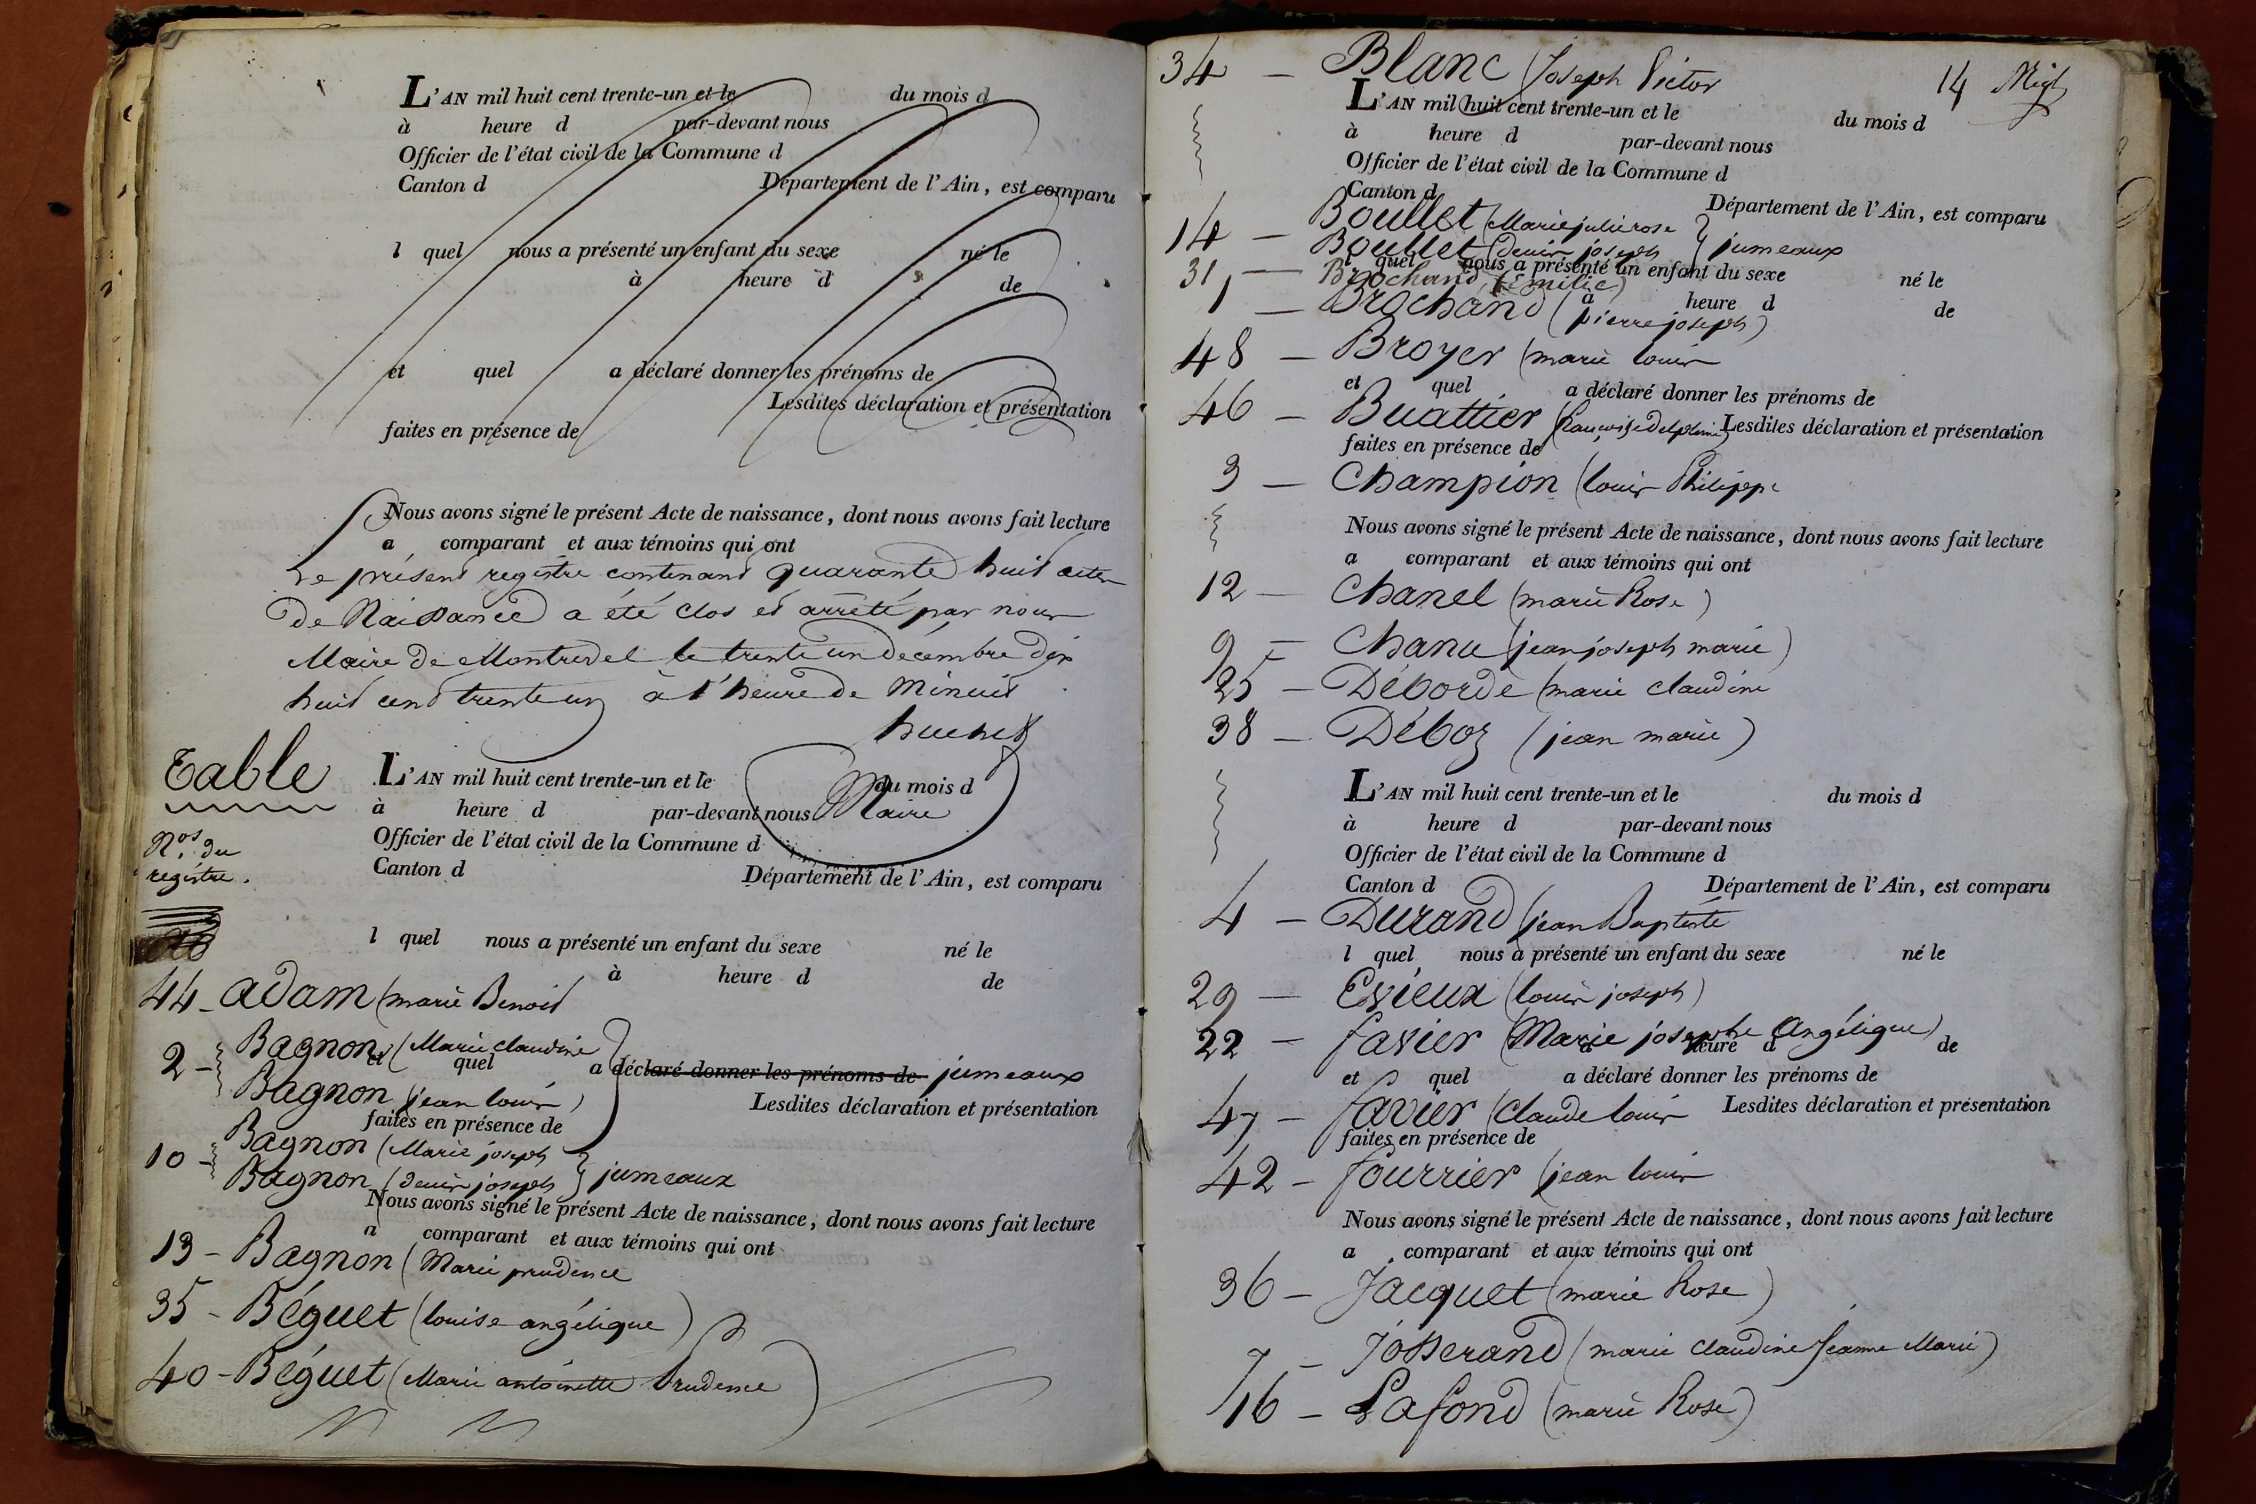 L'AN mil huit cent trente-un et le du mois d
à heure d par-devant nous
Officier de l'état civil de la Commune d
Canton d Département de l'Ain, est comparu
l quel nous a présenté un enfant du sexe né le
à heure d de
et quel a déclaré donner les prénoms de
Lesdites déclaration et présentation
faites en présence de
Nous avons signé le présent Acte de naissance, dont nous avons fait lecture
a comparant et aux témoins qui ont
Le présent registre contenant quarante huit actes
de Naissance a été clos et arrêté par nous
Maire de Montrevel le trente un décembre dix
huit cent trente un à l'heure de Minuit
Table
L'AN mil huit cent trente-un et le du mois d
Maire
à heure d par-devant nous
Officier de l'état civil de la Commune d
Nos du
registre.
Canton d Département de l'Ain, est comparu
l quel nous a présenté un enfant du sexe né le
à heure d de
44 - adam (marie Benoit
2 - Bagnon (Marie claudine
et quel a déclaré donner les prénoms de jumeaux
Bagnon (jean louis)
Lesdites déclaration et présentation
faites en présence de
10 - Bagnon (Marie joseph
Bagnon (denis joseph } jumeaux
Nous avons signé le présent Acte de naissance, dont nous avons fait lecture
a comparant et aux témoins qui ont
13 - Bagnon (Marie prudence
35 - Béguet (louise angélique)
40 - Béguet (Marie antoinette Prudence)
34 - Blanc (Joseph Victor
14
L'AN mil huit cent trente-un et le du mois d
à heure d par-devant nous
Officier de l'état civil de la Commune d
Canton d Département de l'Ain, est comparu
14 - Boullet (Marie julie rose
Boullet (denis joseph } jumeaux
l quel nous a présenté un enfant du sexe né le
31 - Brochand (Emilie)
à heure d de
1 - Brochand (pierre joseph)
48 - Broyer (marie louis
et quel a déclaré donner les prénoms de
46 - Buattier (françoise delphine)
Lesdites déclaration et présentation
faites en présence de
3 - Champion (louis Philippe
Nous avons signé le présent Acte de naissance, dont nous avons fait lecture
a comparant et aux témoins qui ont
12 - Chanel (marie Rose)
9 - Chanu (jean joseph marie)
25 - Déborde (marie claudine
38 - Déboz (jean marie)
L'AN mil huit cent trente-un et le du mois d
à heure d par-devant nous
Officier de l'état civil de la Commune d
Canton d Département de l'Ain, est comparu
4 - Durand (jean Baptiste
l quel nous a présenté un enfant du sexe né le
29 - Evieux (louis joseph)
22 - favier (Marie josephe Angélique)
à heure d de
et quel a déclaré donner les prénoms de
47 - favier (Claude louis
Lesdites déclaration et présentation
faites en présence de
42 - fourrier (jean louis
Nous avons signé le présent Acte de naissance, dont nous avons fait lecture
a comparant et aux témoins qui ont
36 - Jacquet (marie Rose)
7 - Josserand (marie claudine Jeanne Marie)
16 - Lafond (marie Rose)